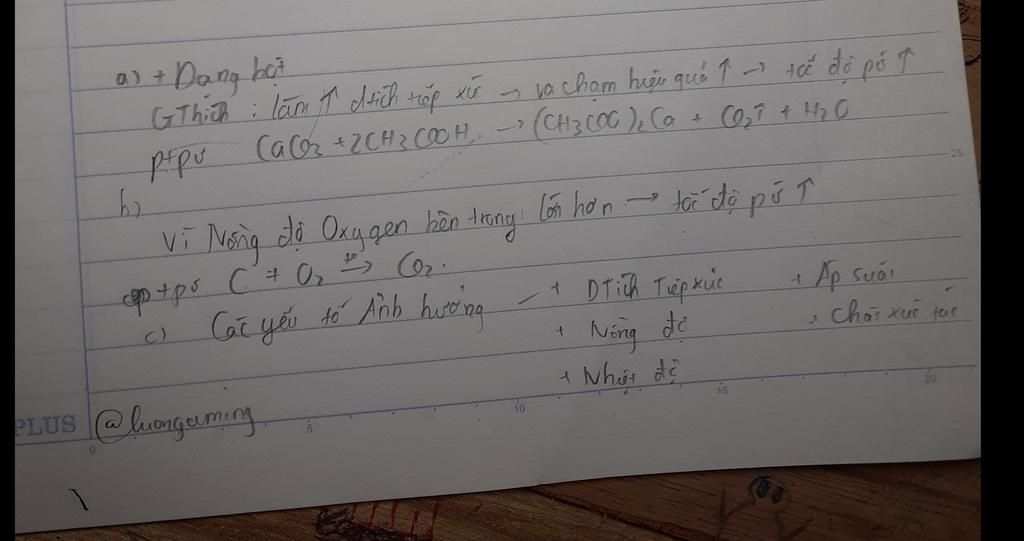 a) + Dạng bột
GThích : làm ↑ dtích tiếp xúc → va chạm hiệu quả ↑ → tốc độ pứ ↑
ptpư CaCO3 + 2CH3COOH → (CH3COO)2Ca + CO2↑ + H2O
b)
Vì Nồng độ Oxygen bên trong lớn hơn → tốc độ pứ ↑
ptpư C + O2 →t° CO2.
c) Các yếu tố Ảnh hưởng + DTích Tiếp xúc + Áp suất
+ Nồng độ + Chất xúc tác
+ Nhiệt độ
PLUS @luongaming
0 5 10 15 20
25